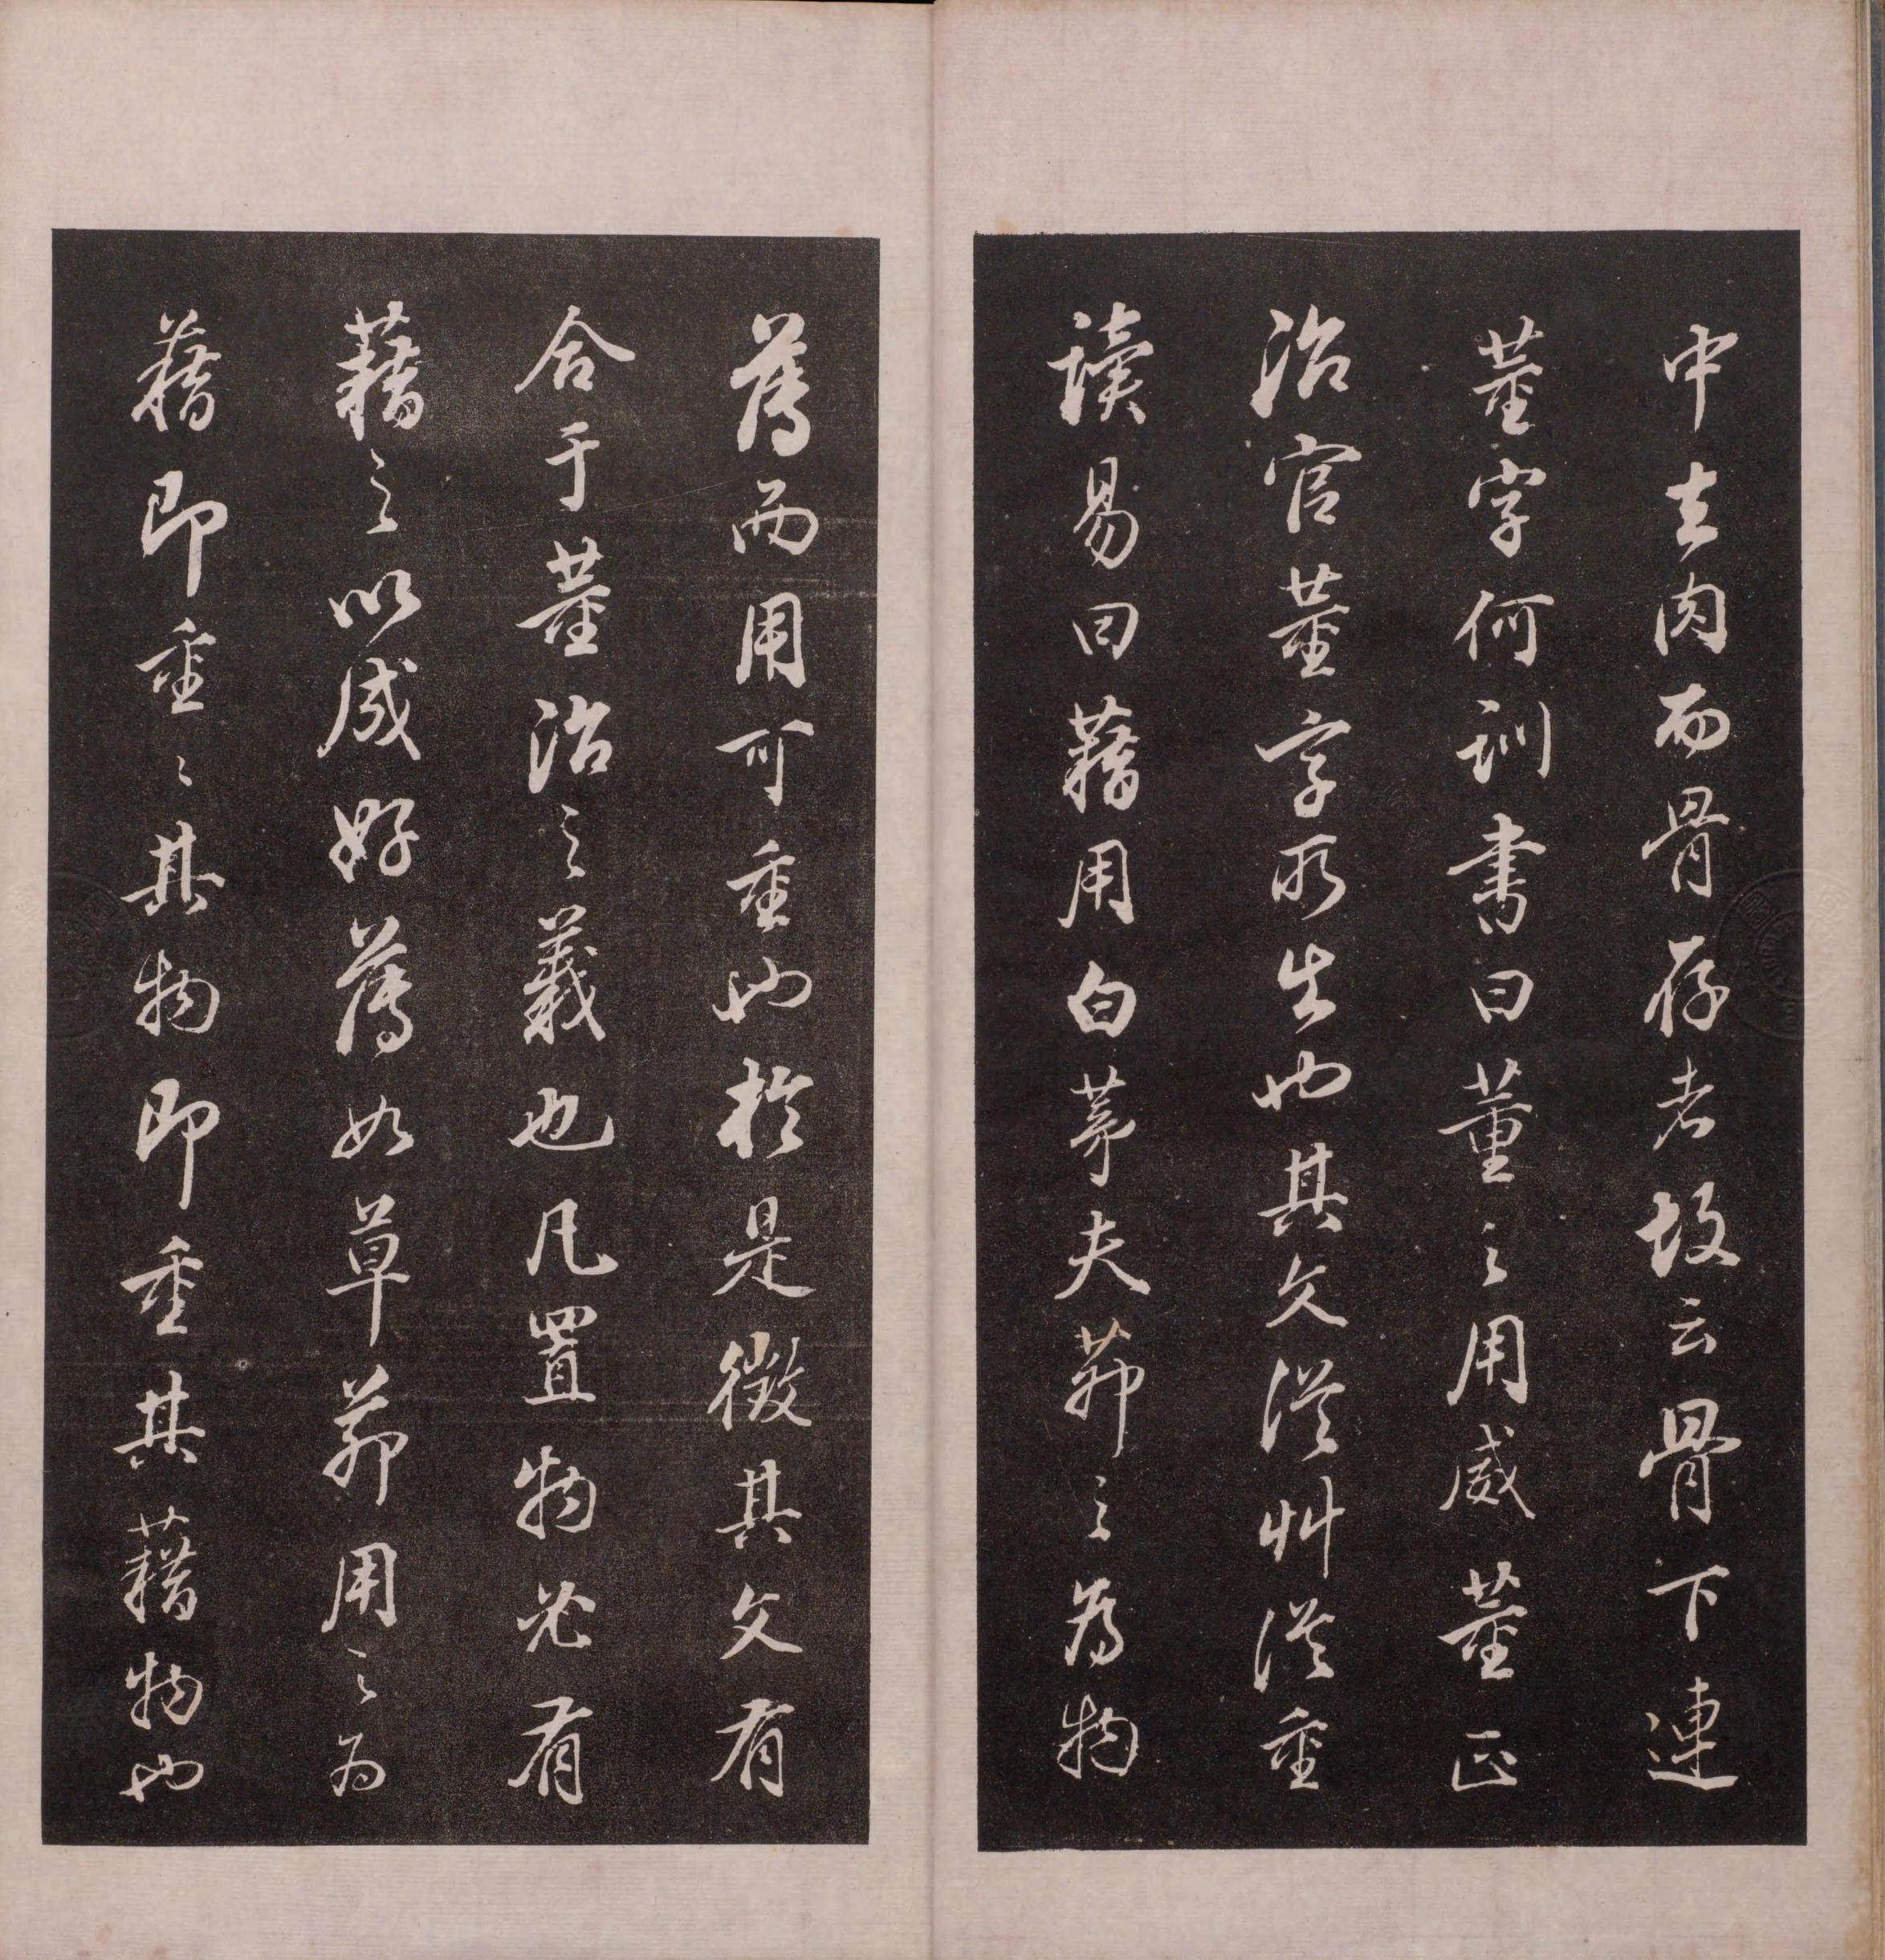 中去肉而骨存者故云骨下連
董字何訓書曰董之用威董正
治官董字所生也其文從艸從重
讀易曰藉用白茅夫茆之為物
薄而用可重也於是徵其文有
合于董治之義也凡置物必有
藉之以成好薄如草茆用之為
藉即重〻其物即重其藉物也